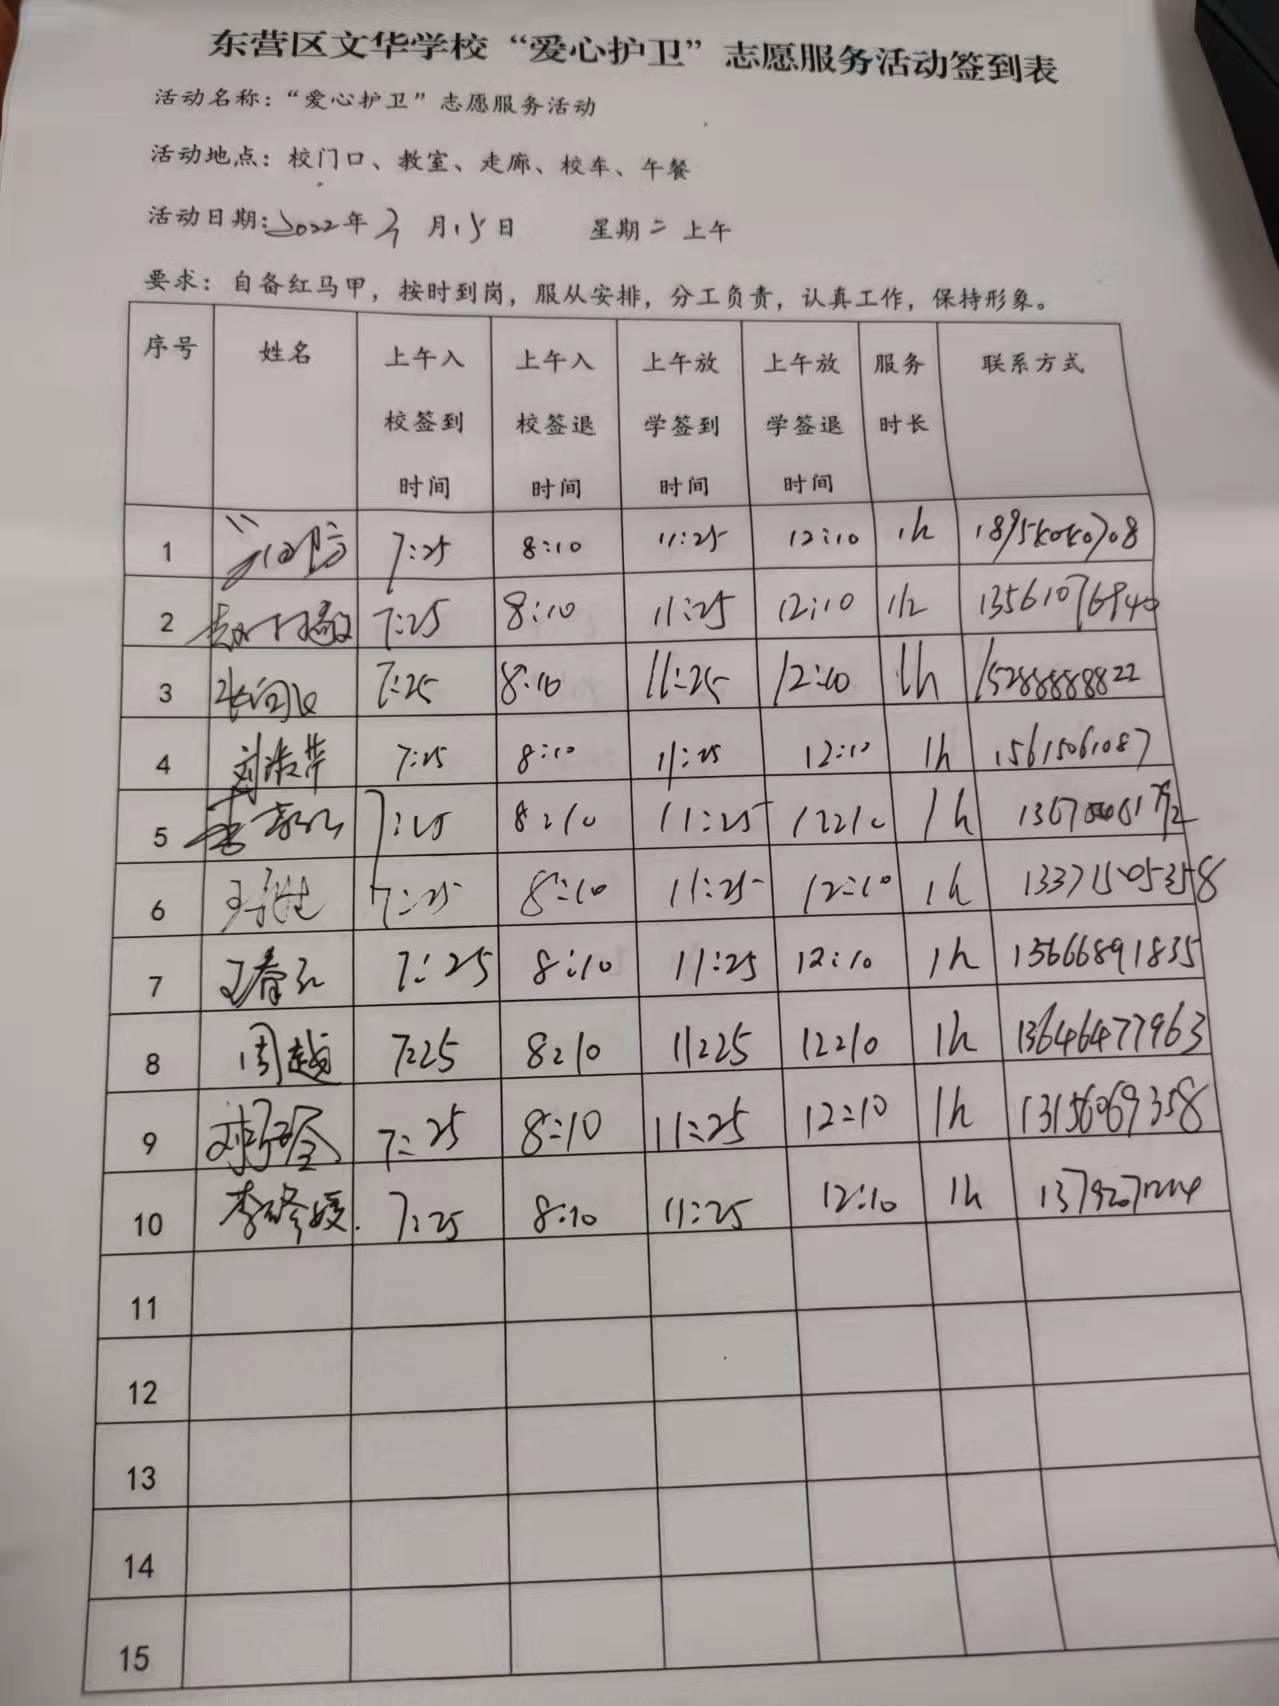 东营区文华学校“爱心护卫”志愿服务活动签到表
活动名称：“爱心护卫”志愿服务活动
活动地点：校门口、教室、走廊、校车、午餐
活动日期：2022年3月15日 星期二上午
要求：自备红马甲，按时到岗，服从安排，分工负责，认真工作，保持形象。
序号 姓名 上午入校签到时间 上午入校签退时间 上午放学签到时间 上午放学签退时间 服务时长 联系方式
1 7:25 8:10 11:25 12:10 1h
2 7:25 8:10 11:25 12:10 1h 13561076940
3 7:25 8:10 11:25 12:10 1h 15288888822
4 7:25 8:10 11:25 12:10 1h 15615061087
5 7:25 8:10 11:25 12:10 1h
6 7:25 8:10 11:25 12:10 1h 13371505358
7 王春红 7:25 8:10 11:25 12:10 1h 13666891835
8 周越 7:25 8:10 11:25 12:10 1h 13646477963
9 7:25 8:10 11:25 12:10 1h 13156069358
10 李修媛 7:25 8:10 11:25 12:10 1h
11
12
13
14
15